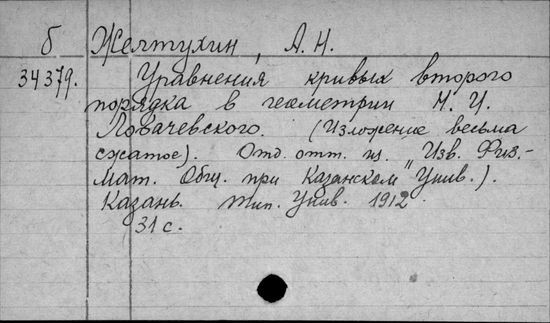 б Желтухин, А. Н.
34379. Уравнения кривых второго
порядка в геометрии Н. И.
Лобачевского. (Изложение весьма
сжатое). Отд. отт. из. Изв. Физ.-
мат. Общ. при Казанском Унив.).
Казань. Тип. Унив. 1912.
31 с.